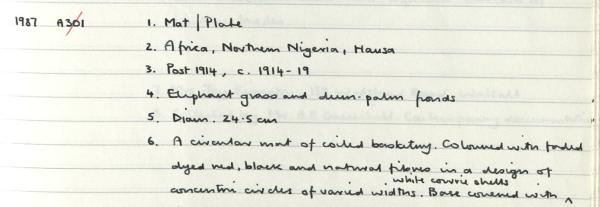 1987 A301 1. Mat / Plate
2. Africa, Northern Nigeria, Hausa
3. Post 1914, c. 1914-19
4. Elephant grass and dum-palm fronds
5. Diam. 24.5 cm
6. A circular mat of coiled basketry. Coloured with faded
dyed red, black and natural fibres in a design of
white cowrie shells
concentric circles of varied widths. Base covered with ^